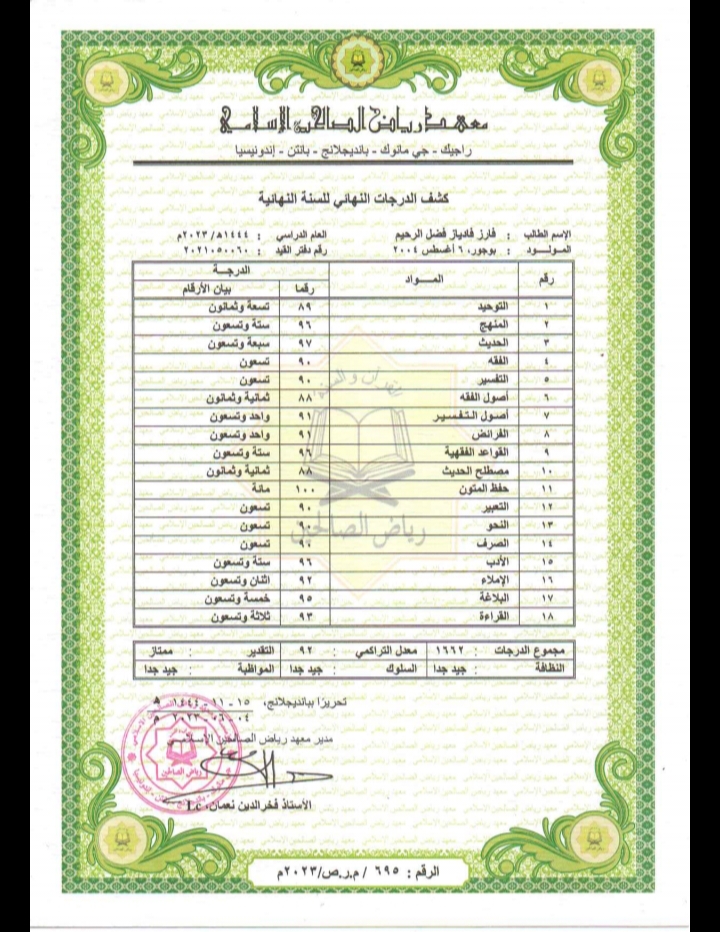 معهد رياض الصالحين الإسلامي
راجيك - جي مانوك - بانديجلانج - بانتن - إندونيسيا
كشف الدرجات النهائي للسنة النهائية
الإسم الطالب : فارز فادياز فضل الرحيم العام الدراسي : ١٤٤٤ه/٢٠٢٣م
المولود : بوجور، ٦ أغسطس ٢٠٠٤ رقم دفتر القيد : ٢٠٢١٠٥٠٠٦٠
رقم المواد الدرجة
رقما بيان الأرقام
١ التوحيد ٨٩ تسعة وثمانون
٢ المنهج ٩٦ ستة وتسعون
٣ الحديث ٩٧ سبعة وتسعون
٤ الفقه ٩٠ تسعون
٥ التفسير ٩٠ تسعون
٦ أصول الفقه ٨٨ ثمانية وثمانون
٧ أصول التفسير ٩١ واحد وتسعون
٨ الفرائض ٩١ واحد وتسعون
٩ القواعد الفقهية ٩٦ ستة وتسعون
١٠ مصطلح الحديث ٨٨ ثمانية وثمانون
١١ حفظ المتون ١٠٠ مائة
١٢ التعبير ٩٠ تسعون
١٣ النحو ٩٠ تسعون
١٤ الصرف ٩٠ تسعون
١٥ الأدب ٩٦ ستة وتسعون
١٦ الإملاء ٩٢ اثنان وتسعون
١٧ البلاغة ٩٥ خمسة وتسعون
١٨ القراءة ٩٣ ثلاثة وتسعون
القرآن والسنة
رياض الصالحين
مجموع الدرجات : ١٦٦٢ معدل التراكمي : ٩٢ التقدير : ممتاز
النظافة : جيد جدا السلوك : جيد جدا المواظبة : جيد جدا
تحريرا ببانديجلانج، ١٥ - ١١ - ١٤٤٤ ه
٠٤ - ٠٦ - ٢٠٢٣ م
مدير معهد رياض الصالحين الإسلامي
رياض الصالحين
الأستاذ فخرالدين نعمان، Lc
الرقم : ٦٩٥ / م.ر.ص/٢٠٢٣م